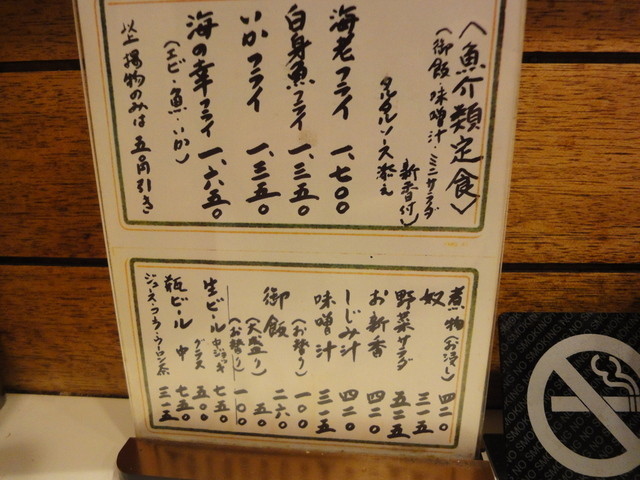 〈魚介類定食〉
(御飯・味噌汁 ミニサラダ
新香付)
タルタルソース添え
海老フライ 一、七〇〇
白身魚フライ 一、三五〇
いかフライ 一、三五〇
海の幸フライ 一、六五〇
(エビ・魚・いか)
以上揚物のみは 五〇円引き
煮物(お浸し) 四二〇
奴 三一五
野菜サラダ 五二五
お新香 四二〇
しじみ汁 四二〇
味噌汁 三一五
(お替り) 一〇〇
御飯 二六〇
(大盛り) 五〇
(お替り) 一〇〇
生ビール 中ジョッキ 七五〇
グラス 五〇〇
瓶ビール 中 七五〇
ジュース・コーラ・ウーロン茶 三一五
NO SMOKING